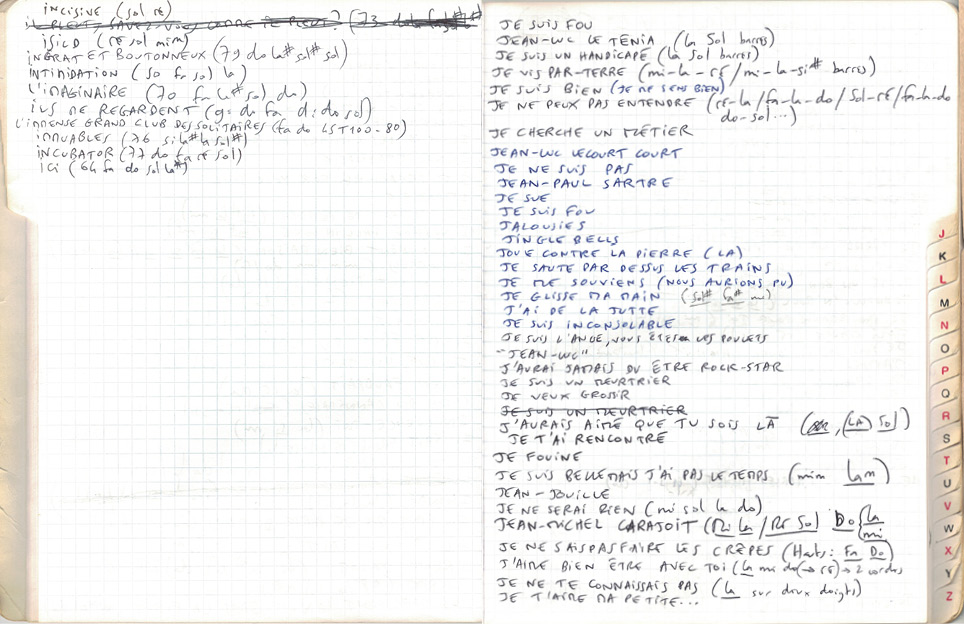 INCISIVE (sol ré)
IL PLEUT, SAVEZ-VOUS COMME IL PLEUT? (73
ISILD (ré sol mim)
INGRAT ET BOUTONNEUX (79 do la# sol# sol)
INTIMIDATION (50 fa sol la)
L'IMAGINAIRE (70 fa la# sol do)
ILS ME REGARDENT do fa do sol)
L'IMMENSE GRAND CLUB DES SOLITAIRES (fa do LST100-80)
IMMUABLES (76 si la# la sol#)
INCUBATOR (77 do fa ré sol)
ICI (64 fa do sol la#)
JE SUIS FOU
JEAN-LUC LE TÉNIA (la Sol barrés)
JE SUIS UN HANDICAPÉ (la Sol barrés)
JE VIS PAR-TERRE (mi-la-ré/mi-la-si# barrés)
JE SUIS BIEN (JE ME SENS BIEN)
JE NE PEUX PAS ENTENDRE (ré-la/fa-la-do/Sol-ré/fa-la-do
do-sol...)
JE CHERCHE UN MÉTIER
JEAN-LUC LECOURT COURT
JE NE SUIS PAS
JEAN-PAUL SARTRE
JE SUE
JE SUIS FOU
JALOUSIES
JINGLE BELLS
JOUE CONTRE LA PIERRE (LA)
JE SAUTE PAR DESSUS LES TRAINS
JE ME SOUVIENS (NOUS AURIONS PU)
JE GLISSE MA MAIN (sol# fa# mi)
J'AI DE LA JUTTE
JE SUIS INCONSOLABLE
JE SUIS L'ANGE, VOUS ÊTES LES POULETS
"JEAN-LUC"
J'AURAI JAMAIS DU ÊTRE ROCK-STAR
JE SUIS UN MEURTRIER
JE VEUX GROSSIR
JE SUIS UN MEURTRIER
J'AURAIS AIMÉ QUE TU SOIS LÀ (LA) Sol)
JE T'AI RENCONTRÉ
JE FOUINE
JE SUIS BELLE MAIS J'AI PAS LE TEMPS (mim Lam)
JEAN-JOUILLE
JE NE SERAI RIEN (mi sol la do)
JEAN-MICHEL CARAJOIT (Mi La/Ré Sol) Do {la
mi
JE NE SAIS PAS FAIRE LES CRÊPES (Hauts: Fa Do)
J'AIME BIEN ÊTRE AVEC TOI (La mi do(→ré)→2 cordes
JE NE TE CONNAISSAIS PAS (La sur deux doigts)
JE T'AIME MA PETITE...
J
K
L
M
N
O
P
Q
R
S
T
U
V
W
X
Y
Z